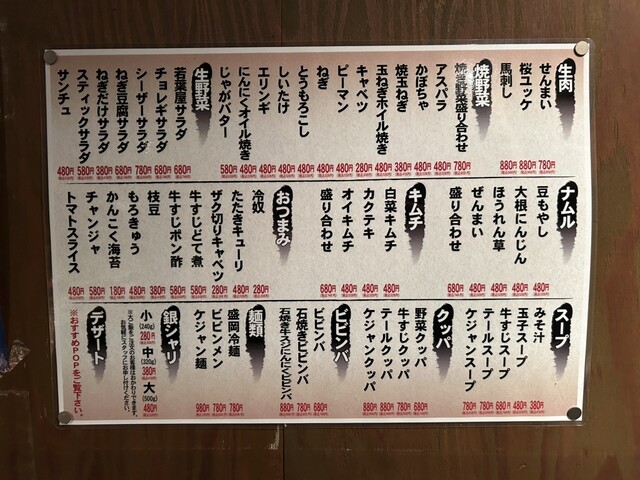 生肉
せんまい 780円
桜ユッケ 880円
馬刺し 880円
焼野菜
焼き野菜盛り合わせ 780円
アスパラ 480円
かぼちゃ 480円
焼玉ねぎ 380円
玉ねぎホイル焼き 480円
キャベツ 280円
ピーマン 480円
ねぎ 480円
とうもろこし 480円
しいたけ 480円
エリンギ 480円
にんにくオイル焼き 480円
じゃがバター 580円
生野菜
若葉屋サラダ 680円
チョレギサラダ 680円
シーザーサラダ 780円
ねぎ豆腐サラダ 680円
ねぎだけサラダ 380円
スティックサラダ 580円
サンチュ 480円
ナムル
豆もやし 480円
大根にんじん 480円
ほうれん草 480円
ぜんまい 480円
盛り合わせ 680円
キムチ
白菜キムチ 480円
カクテキ 480円
オイキムチ 480円
盛り合わせ 680円
おつまみ
冷奴 280円
たたきキューリ 480円
ザク切りキャベツ 280円
牛すじどて煮 480円
牛すじポン酢 580円
枝豆 380円
もろきゅう 480円
かんこく海苔 180円
チャンジャ 580円
トマトスライス 480円
スープ
みそ汁 380円
玉子スープ 480円
牛すじスープ 680円
テールスープ 780円
ケジャンスープ 780円
クッパ
野菜クッパ 680円
牛すじクッパ 780円
テールクッパ 880円
ケジャンクッパ 880円
ビビンバ
ビビンバ 680円
石焼きビビンバ 780円
石焼き牛スジにんにくビビンバ 880円
麺類
盛岡冷麺 780円
ビビンメン 780円
ケジャン麺 980円
銀シャリ
小(240g) 280円
中(320g) 380円
大(500g) 480円
デザート
※おすすめPOPをご覧下さい。